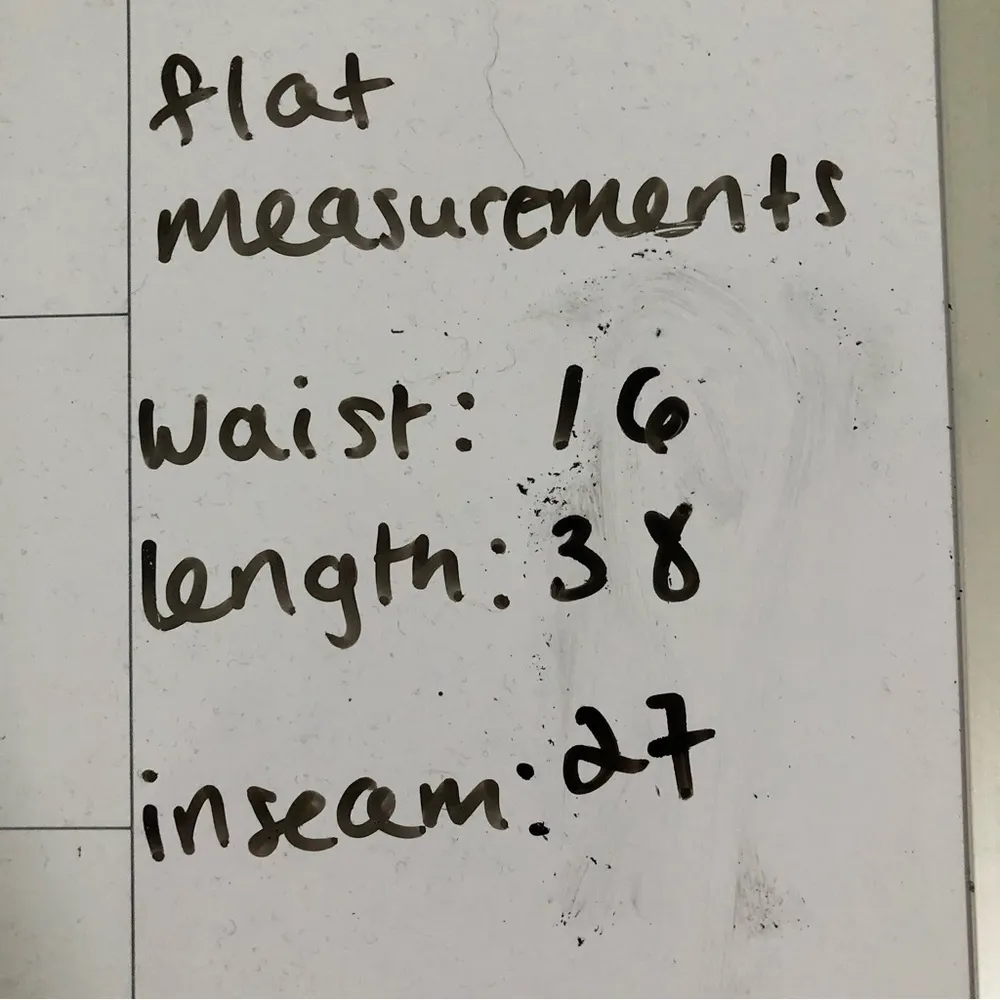 flat
measurements
waist: 16
length: 38
inseam: 27